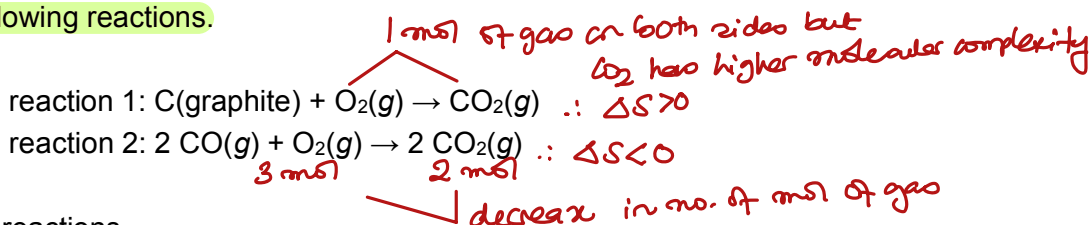 lowing reactions.
1 mol of gas on both sides but
CO2 has higher molecular complexity
reaction 1: C(graphite) + O2(g) → CO2(g) ∴ ΔS>0
reaction 2: 2 CO(g) + O2(g) → 2 CO2(g) ∴ ΔS<0
3 mol 2 mol
decrease in no. of mol of gas
reactions